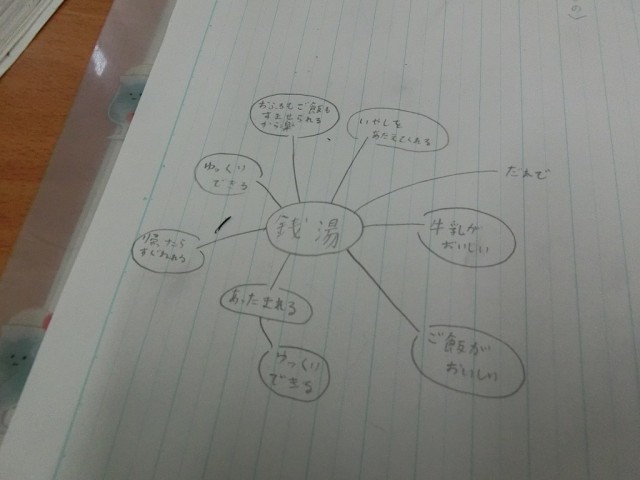 の〉
おふろもご飯も
すませられる
から楽
いやしを
あたえてくれる
だれで
ゆっくり
できる
銭湯
牛乳が
おいしい
すごせれる
あったまれる
ご飯が
おいしい
ゆっくり
できる